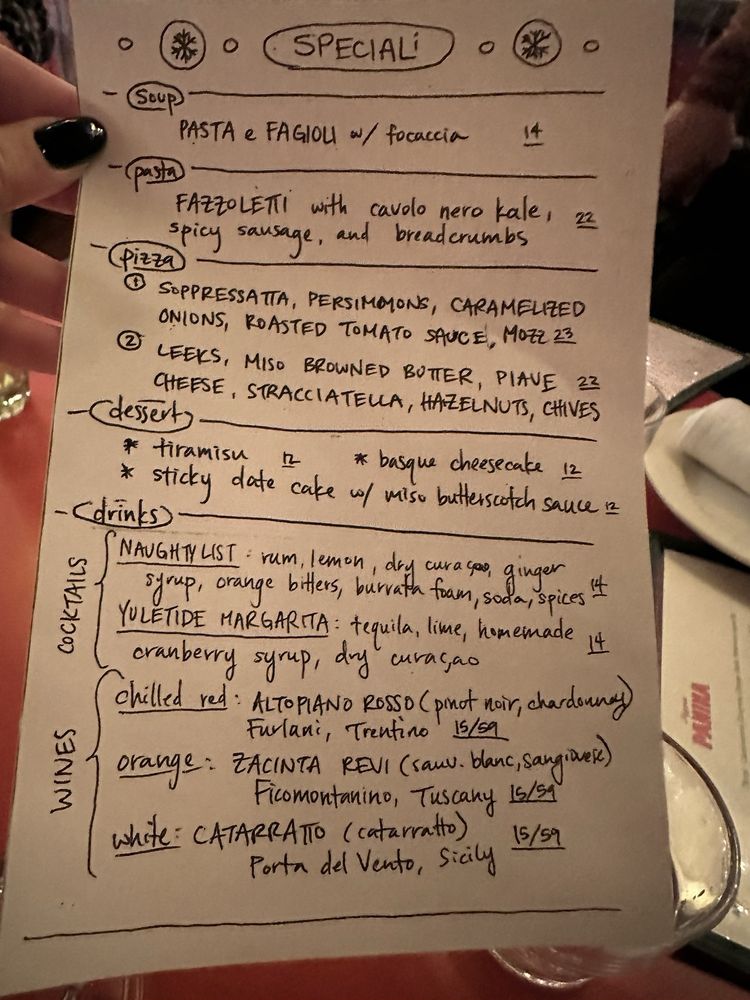 SPECIALi
Soup
PASTA e FAGIOLI w/ focaccia 14
pasta
FAZZOLETTI with cavolo nero kale, 22
spicy sausage, and breadcrumbs
pizza
① SOPPRESSATTA, PERSIMMONS, CARAMELIZED
ONIONS, ROASTED TOMATO SAUCE, MOZZ 23
② LEEKS, MISO BROWNED BUTTER, PIAVE 22
CHEESE, STRACCIATELLA, HAZELNUTS, CHIVES
dessert
* tiramisu 12 * basque cheesecake 12
* sticky date cake w/ miso butterscotch sauce 12
drinks
COCKTAILS
NAUGHTY LIST: rum, lemon, dry curaçao, ginger
syrup, orange bitters, burrata foam, soda, spices 14
YULETIDE MARGARITA: tequila, lime, homemade
cranberry syrup, dry curaçao 14
WINES
chilled red: ALTOPIANO ROSSO (pinot noir, chardonnay)
Furlani, Trentino 15/59
orange: ZACINTA REVI (sauv. blanc, sangiovese)
Ficomontanino, Tuscany 15/59
white: CATARRATTO (catarratto) 15/59
Porta del Vento, Sicily
PANNA